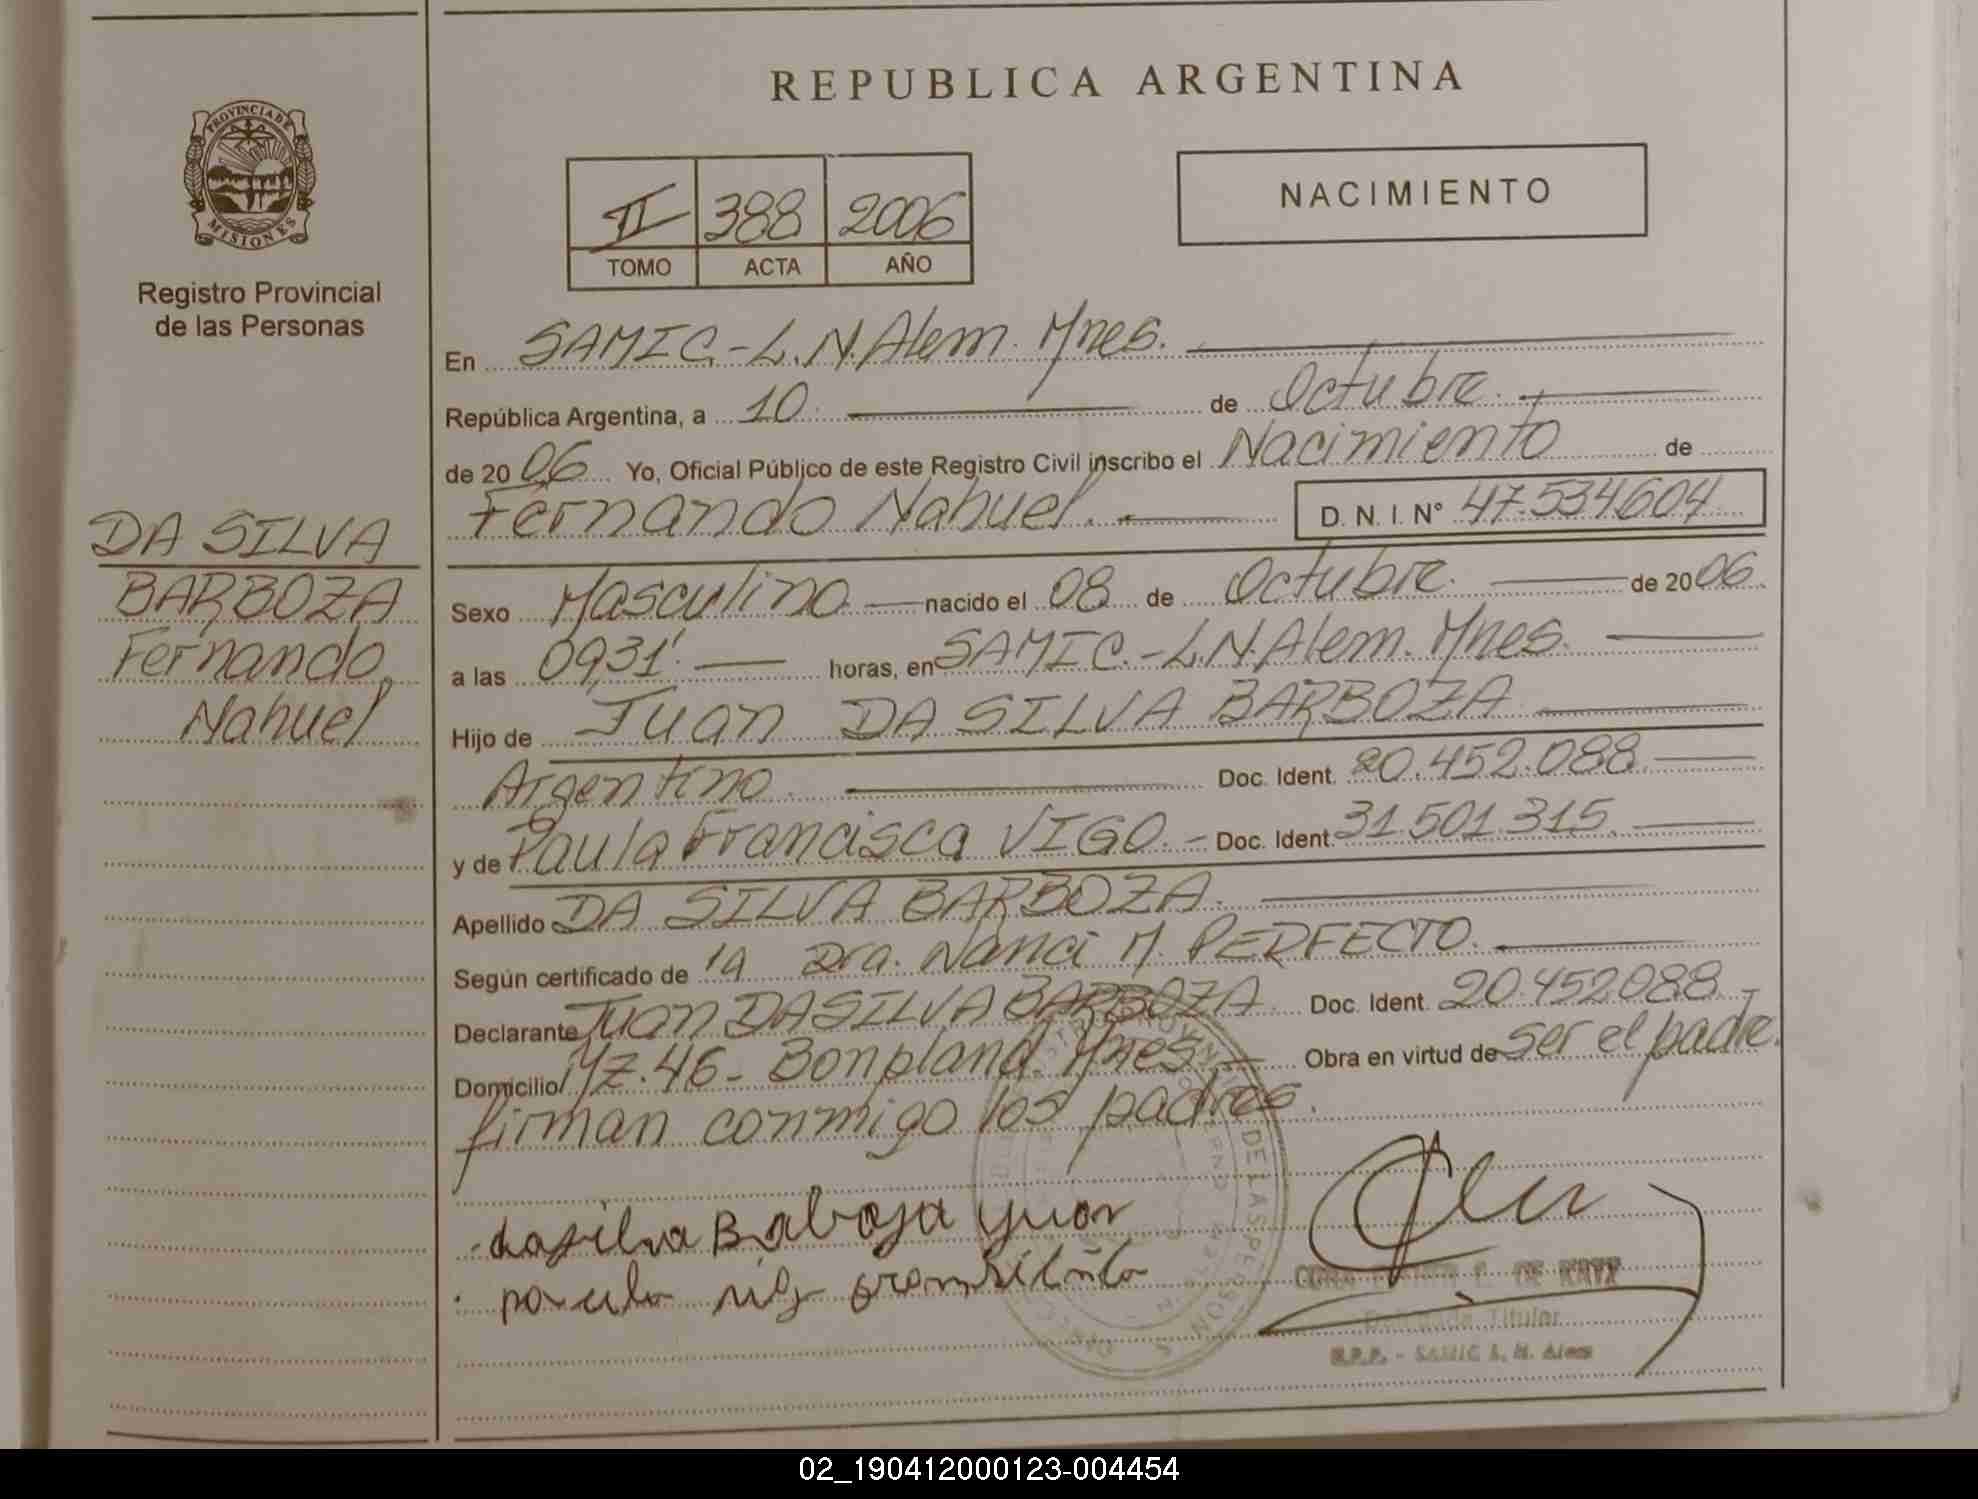 REPUBLICA ARGENTINA
PROVINCIA DE
MISIONES
Registro Provincial
de las Personas
II 388 2006
TOMO ACTA AÑO
NACIMIENTO
DA SILVA
BARBOZA
Fernando
Nahuel
En SAMIC.-L.N.Alem. Mnes.
República Argentina, a 10 de Octubre.
de 2006 Yo, Oficial Público de este Registro Civil inscribo el Nacimiento de
Fernando Nahuel. D. N. I. N° 47.534604
Sexo Masculino nacido el 08 de Octubre. de 2006.
a las 09,31'. horas, en SAMIC.-L.N.Alem. Mnes.
Hijo de Juan DA SILVA BARBOZA
Argentino. Doc. Ident. 20.452.088
y de Paula Francisca VIGO.- Doc. Ident. 31.501.315.
Apellido DA SILVA BARBOZA.
Según certificado de la Dra. Nanci M. PERFECTO.
Declarante Juan DA SILVA BARBOZA. Doc. Ident. 20.452088.-
Domicilio Mz.46- Bonpland. Mnes.- Obra en virtud de ser el padre.
firman conmigo los padres.
DE LAS PERSONAS
DE KRYX
Delegada Titular
R.P.P. - SAMIC L. N. Alem
02_190412000123-004454